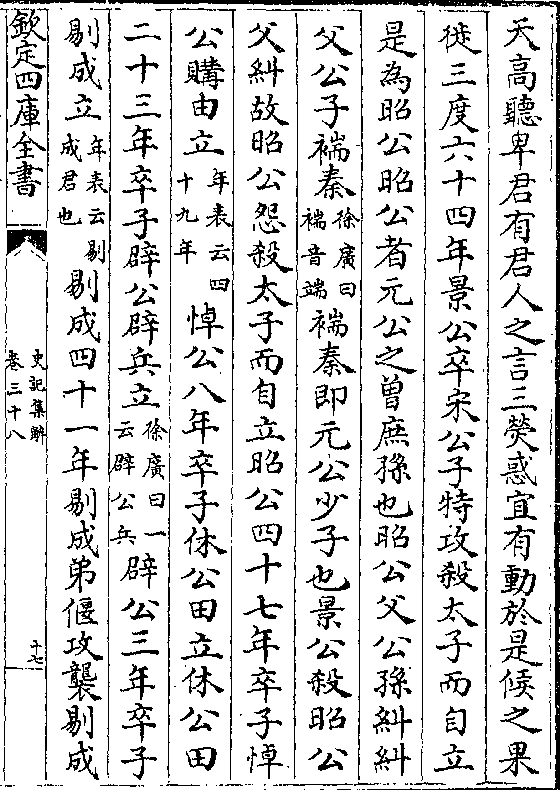 天高聽卑君有君人之言三熒惑宜有動於是候之果
徙三度六十四年景公卒宋公子特攻殺太子而自立
是為昭公昭公者元公之曾庶孫也昭公父公孫糾糾
父公子褍秦徐廣曰褍音端褍秦即元公少子也景公殺昭公
父糾故昭公怨殺太子而自立昭公四十七年卒子悼
公購由立年表云四十九年悼公八年卒子休公田立休公田
二十三年卒子辟公辟兵立徐廣曰一云辟公兵辟公三年卒子
剔成立年表云剔成君也剔成四十一年剔成弟偃攻襲剔成
欽定四庫全書
史記集解
卷三十八
十七